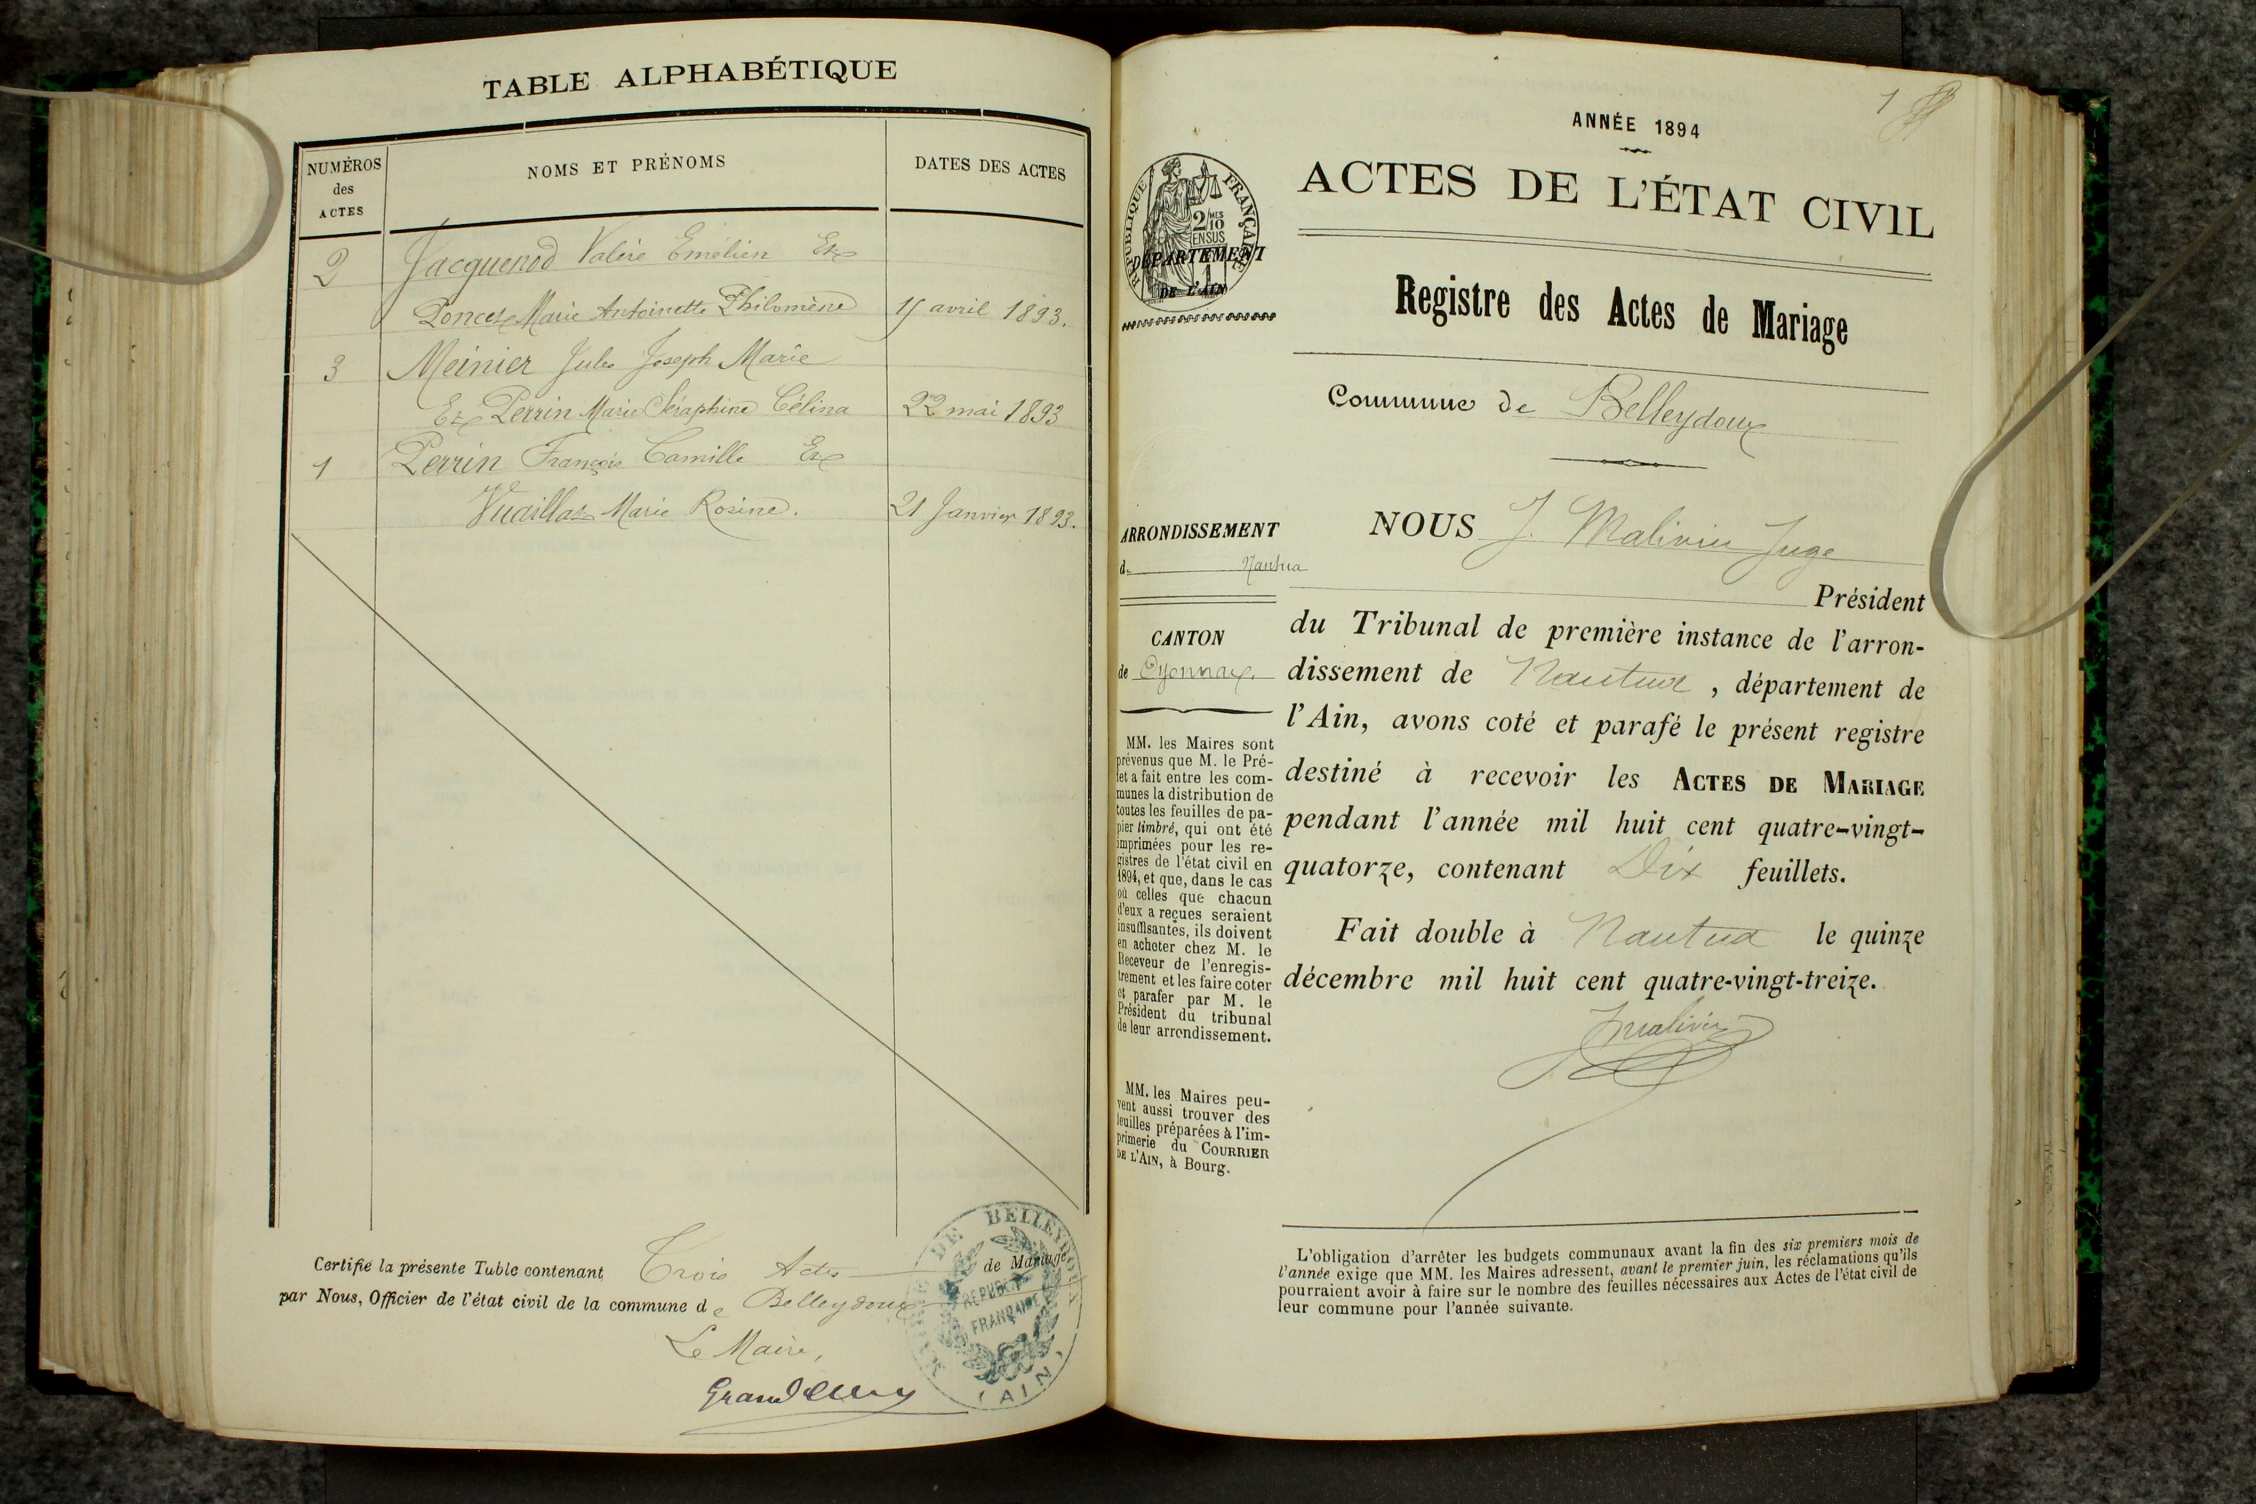 TABLE ALPHABÉTIQUE
NUMÉROS
des
ACTES
NOMS ET PRÉNOMS
DATES DES ACTES
2 Jacquenod Valère Emélien Et
Poncet Marie Antoinette Philomène 15 avril 1893.
3 Meinier Jules Joseph Marie
Et Perrin Marie Séraphine Célina 22 mai 1893
1 Perrin François Camille Et
Vuaillat Marie Rosine. 21 Janvier 1893.
Certifié la présente Table contenant Trois Actes de Mariage
par Nous, Officier de l'état civil de la commune de Belleydoux
Le Maire,
MAIRIE DE BELLEYDOUX
RÉPUBLIQUE
FRANÇAISE
(AIN)
1
ANNÉE 1894
ACTES DE L'ÉTAT CIVIL
Registre des Actes de Mariage
Commune de Belleydoux
RÉPUBLIQUE FRANÇAISE
2/10MES
EN SUS
DÉPARTEMENT
DE L'AIN
ARRONDISSEMENT
de Nantua
CANTON
de Oyonnax.
MM. les Maires sont
prévenus que M. le Pré-
fet a fait entre les com-
munes la distribution de
toutes les feuilles de pa-
pier timbré, qui ont été
imprimées pour les re-
gistres de l'état civil en
1894, et que, dans le cas
où celles que chacun
d'eux a reçues seraient
insuffisantes, ils doivent
en acheter chez M. le
Receveur de l'enregis-
trement et les faire coter
et parafer par M. le
Président du tribunal
de leur arrondissement.
MM. les Maires peu-
vent aussi trouver des
feuilles préparées à l'im-
primerie du COURRIER
DE L'AIN, à Bourg.
NOUS J. Malivin Juge
Président
du Tribunal de première instance de l'arron-
dissement de Nantua, département de
l'Ain, avons coté et parafé le présent registre
destiné à recevoir les ACTES DE MARIAGE
pendant l'année mil huit cent quatre-vingt-
quatorze, contenant Dix feuillets.
Fait double à Nantua le quinze
décembre mil huit cent quatre-vingt-treize.
JMalivin
L'obligation d'arrêter les budgets communaux avant la fin des six premiers mois de
l'année exige que MM. les Maires adressent, avant le premier juin, les réclamations qu'ils
pourraient avoir à faire sur le nombre des feuilles nécessaires aux Actes de l'état civil de
leur commune pour l'année suivante.